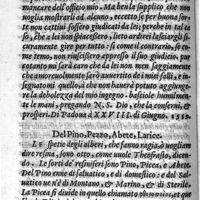 mancare dell'officio mio. Ma ben la supplico, che non
voglia mostrarli ad alcuno, eccetto se per buona sor-
te non cattivi fossero giudicati da lei; perche in tal ca
so, che a lei non spiacessero, lieto ardirei lasciargli si-
curamente gire per tutto: si come il contrario, se co-
me temo, non riuscissero appresso il suo giudicio, par
entato da lei con quella prudente, &
che amorevolmente sarò avvertito de i miei falli, in se-
gnatomi quello, a che non haverà potuto aggiunge-
re la debolezza del mio ingegno. basciole humilmen-
te le mani, pregando N. S. Dio, che la conservi, &
prosperi. Di Padova a XXVIII. di Giugno. 1552.
Del Pino, Pezzo, Abete, Larice.
LE spetie degli alberi, che fanno ragia, ò vogliam
dire resina, sono otto, come vuole Theofrasto, dicen-
do. Le sorti de' resiniferi sono Pino, Picea, e Abete.
Del Pino enne di salvatico, e di domestico: e del Sal-
vatico un'è di Montano, & Marino, & di Sterile.
La Picea si divide in quello chiamato